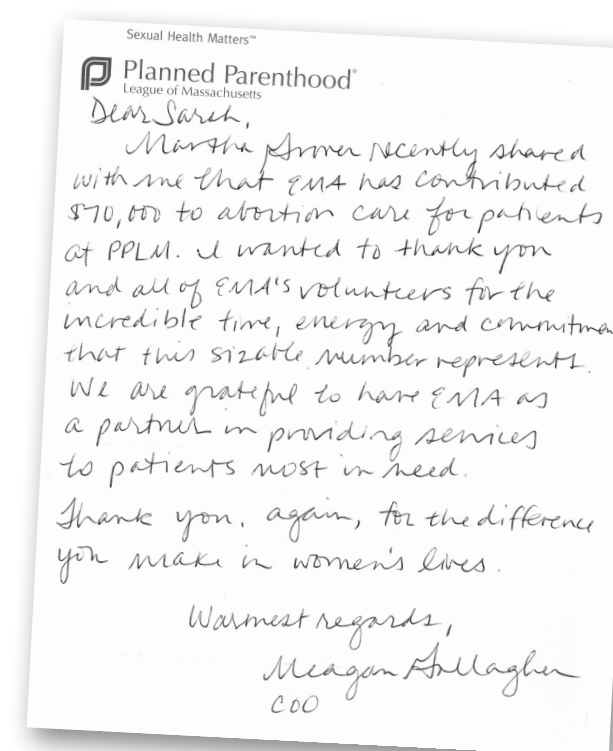 Sexual Health Matters™
Planned Parenthood®
League of Massachusetts
Dear Sarah,
Martha Grover recently shared
with me that EMA has contributed
$70,000 to abortion care for patients
at PPLM. I wanted to thank you
and all of EMA's volunteers for the
incredible time, energy and commitmen
that this sizable number represents.
We are grateful to have EMA as
a partner in providing services
to patients most in need.
Thank you, again, for the difference
you make in women's lives.
Warmest regards,
Meagan Gallagher
COO